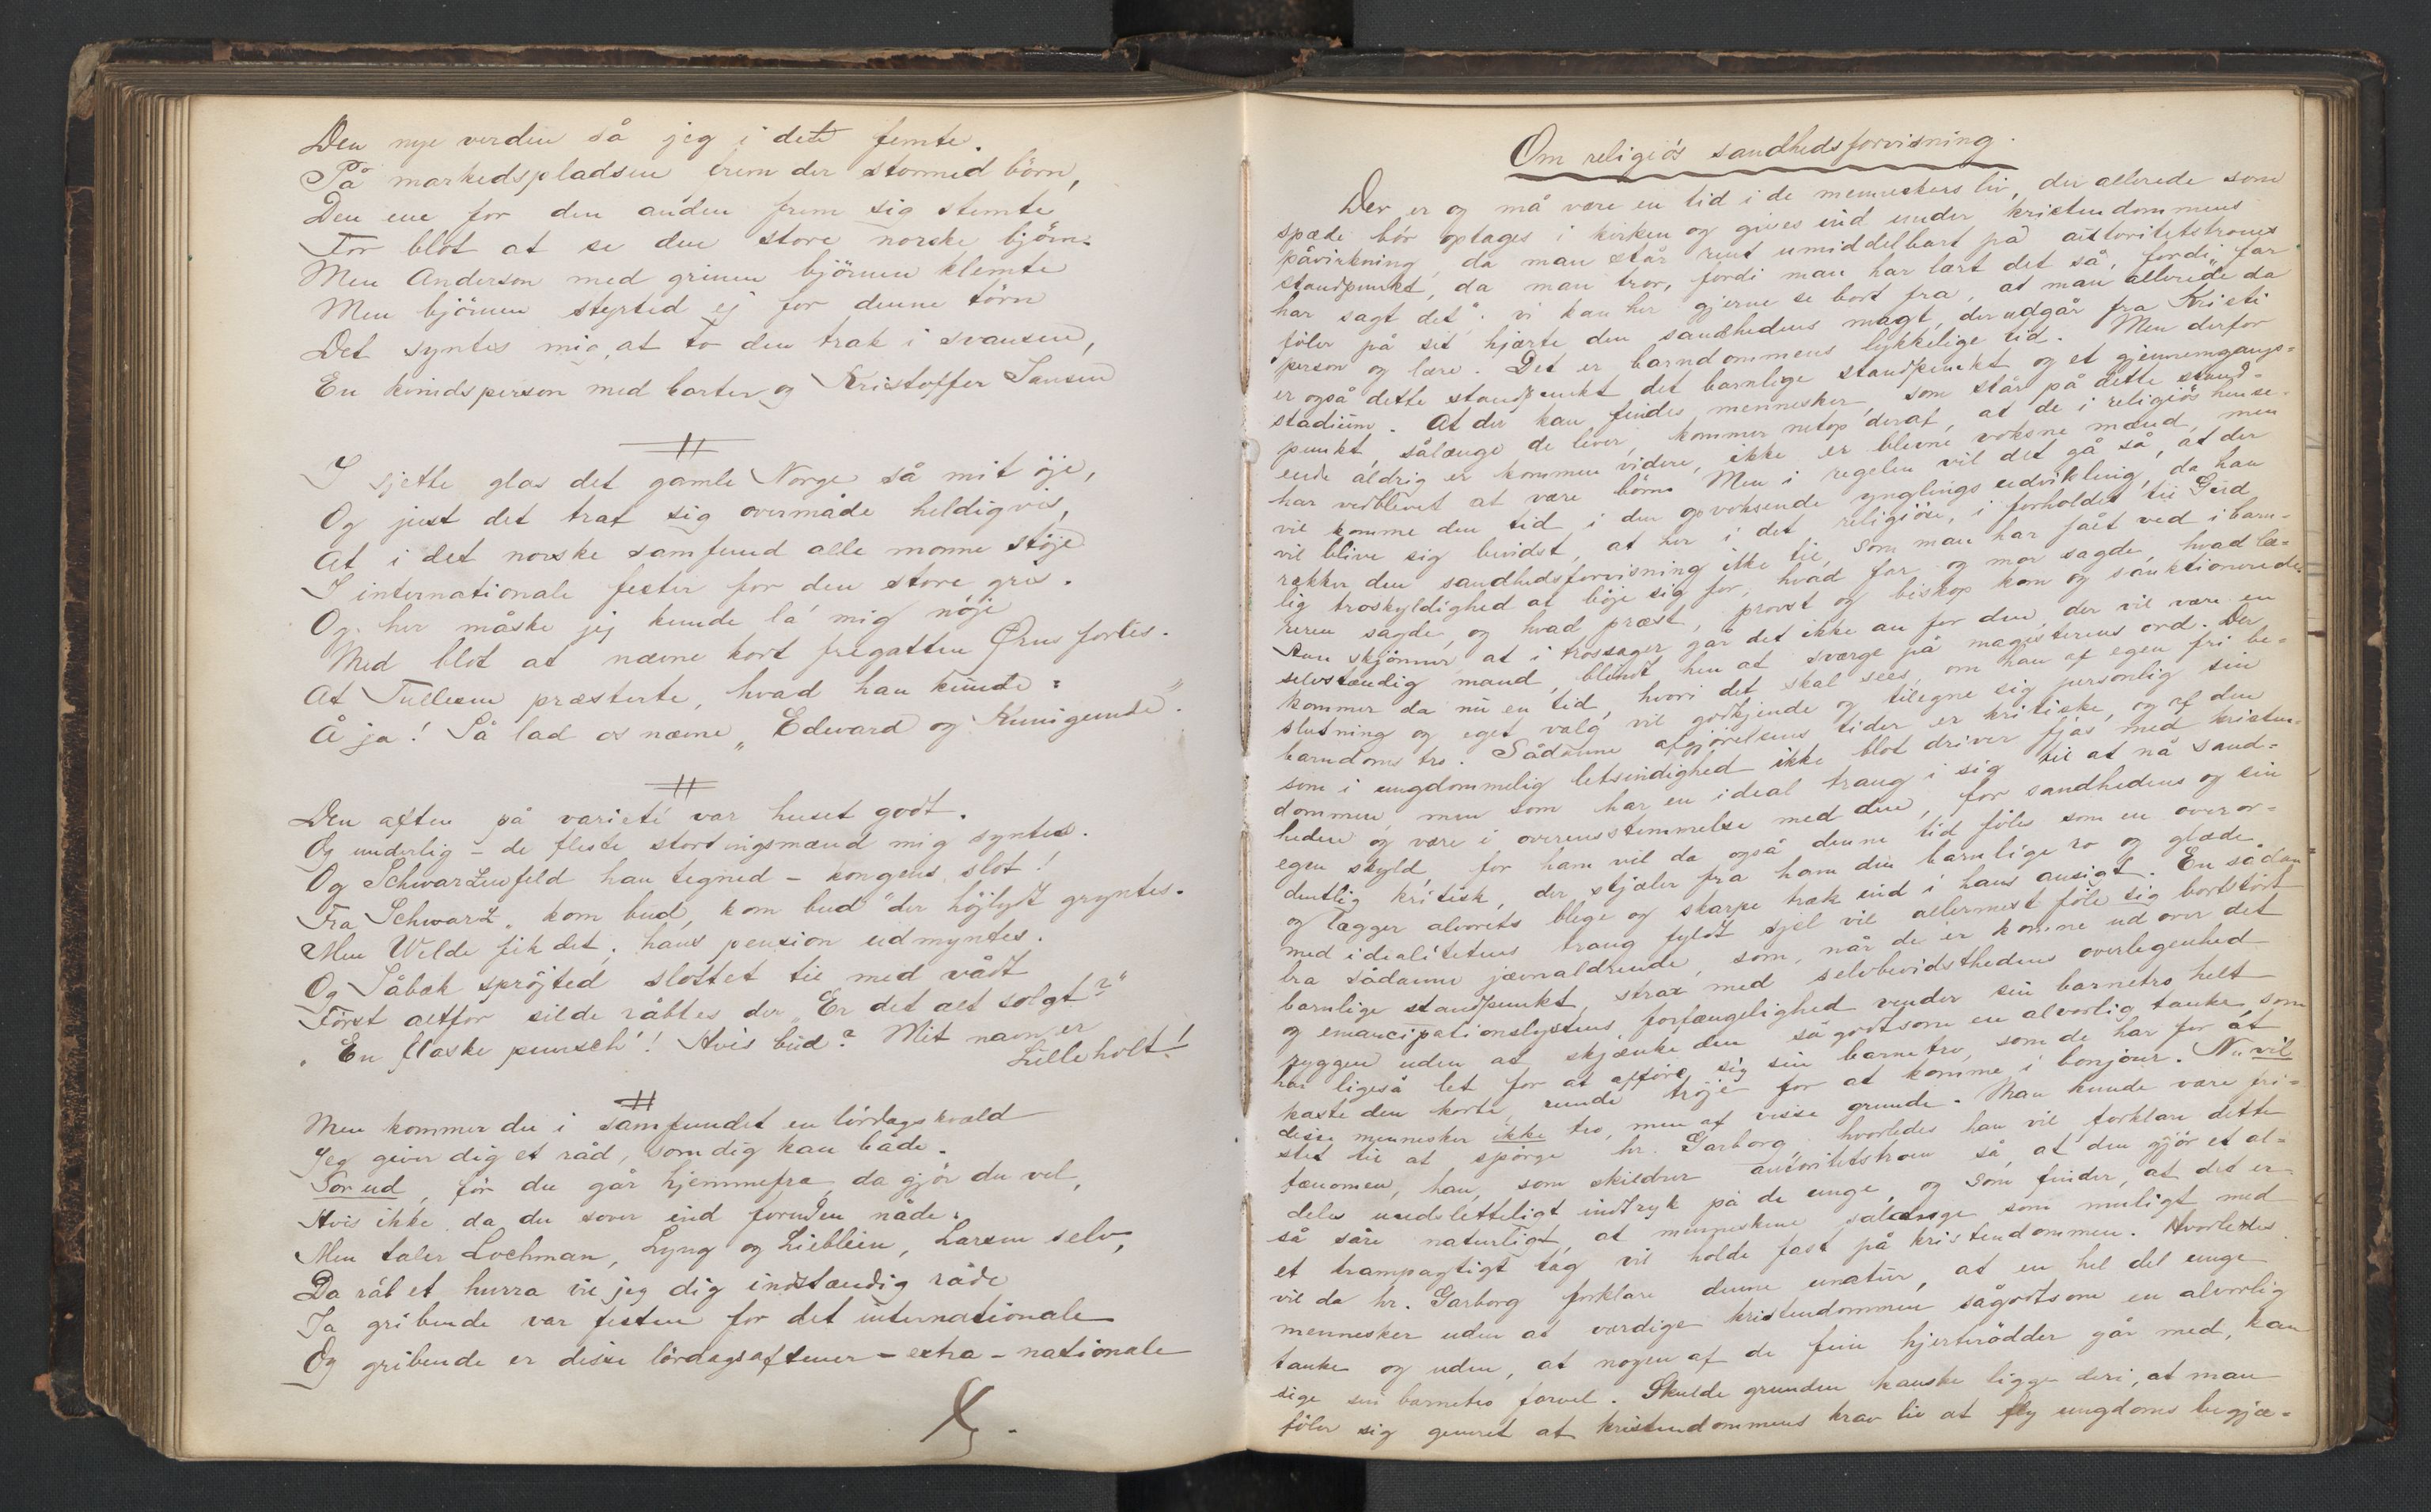 Den nye verden så jeg i det femte.
På markedspladsen frem der stormed börn,
Den ene for den anden frem sig stemte
For blot at se den store norske björn.
Men Anderson med grinen björnen klemte
Men björnen styrted ej for denne törn
Det syntes mig, at to den trak i svansen,
En kvindsperson med barter og Kristoffer Jansen
I sjette glas det gamle Norge så mit öje,
Og just det traf sig overmåde heldigvis,
At i det norske samfund alle monne støje
I internationale fester for den store gris.
Og her måske jeg kunde la' mig nöje
Med blot at nævne kort fregatten Ørns forlis.
At Tullesen præsterte, hvad han kunde:
Å ja! Så lad os nævne „Edward og Kunigunde".
Den aften på varieté var huset godt.
Og underlig – de fleste stortingsmænd mig syntes.
Og Schwarzenfeld han tegned – kongens slot!
Fra Schwarz „kom bud, kom bud" der höjlydt gryntes.
Men Welde fik det, hans pension udmyntes.
Og Såbæk spröjted slottet til med vådt
Först altfor silde råbtes der „Er det alt solgt?"
„En flaske punsch"! Hvis bud? Mit navn er
Lilleholt!
Men kommer du i samfundet en lördagskvæld
Jeg giver dig et råd, som dig kan både.
Sov ud, för du går hjemmefra, da gjör du vel,
Hvis ikke da du sover ind foruden nåde.
Men taler Lochman, Lyng og Lieblein, Larsen selv,
Da råb et hurra vil jeg dig indstændig råde
Ja gribende var festen for det internationale
Og gribende er disse lördagsaftener – extra – nationale
Om religiøs sandhedsforvisning.
Der er og må være en tid i de menneskers liv, der allerede som
spæde bör optages i kirken og gives ind under kristendommens
påvirkning, da man står rent umiddelbart på autoritetstroens
standpunkt, da man tror, fordi man har lært det så, fordi „far
har sagt det". Vi kan her gjerne se bort fra, at man allerede da
föler på sit hjærte den sandhedens magt, der udgår fra Kristi
person og lære. Det er barndommens lykkelige tid. Men derfor
er også dette standpunkt det barnlige standpunkt og et gjennemgangs=
stadium. At der kan findes mennesker, som står på dette stand=
punkt, sålænge de lever, kommer netop deraf, at de i religiös hense=
ende aldrig er kommen videre, ikke er blevne voksne mænd, men
har vedblevet at være börn. Men i regelen vil det gå så, at der
vil komme den tid i den opvoksende ynglings udvikling, da han
vil blive sig bevidst, at her i det religiöse, i forholdet til Gud
rækker den sandhedsforvisning ikke til, som man har fået ved i barn=
lig troskyldighed at böje sig for, hvad far og mor sagde, hvad læ=
reren sagde, og hvad præst, provst og biskop kom og sanktionerede.
Han skjönner, at i trossager går det ikke an for den, der vil være en
selvstændig mand, blindt hen at sværge på magisterens ord. Der
kommer da nu en tid, hvori det skal sees, om han af egen fri be=
slutning og eget valg vil godkjende og tilegne sig personlig sin
barndoms tro. Sådanne afgjörelsens tider er kritiske, og af den
som i ungdommelig letsindighed ikke blot driver fjas med kristen=
dommen, men som har en ideal trang i sig til at nå sand=
heden og være i overensstemmelse med den, for sandhedens og sin
egen skyld, for ham vil da også denne tid föles som en overor=
dentlig kritisk, der stjæler fra ham den barnlige ro og glæde
og lægger alvorets blege og skarpe træk ind i hans ansigt. En sådan
med idealitetens trang fyldt sjel vil allermest föle sig bortstödt
fra sådanne jævnaldrende, som, når de er komne ud over det
barnlige standpunkt, strax med selvbevidsthedens overlegenhed
og emancipationslystens forfængelighed vender sin barnetro helt
ryggen uden at skjænke den sågodtsom en alvorlig tanke, som
har ligeså let for at afföre sig sin barnetro, som de har for at
kaste den korte, runde tröje for at komme i bonjour. Nu vil
disse mennesker ikke tro, men af visse grunde. Man kunde være fri=
stet til at spörge hr. Garborg, hvorledes han vil forklare dette
fænomen, han, som skildrer autoritetstroen så, at den gjör et al=
deles uudsletteligt indtryk på de unge, og som finder, at det er
så såre naturligt, at menneskene sålænge som muligt med
et krampagtigt tag vil holde fast på kristendommen. Hvorledes
vil da hr. Garborg forklare denne unatur, at en hel del unge
mennesker uden at værdige kristendommen sågodtsom en alvorlig
tanke og uden, at nogen af de fine hjerterödder går med, kan
sige sin barnetro farvel. Skulde grunden kanske ligge deri, at man
föler sig generet at kristendommens krav til at fly ungdoms begjæ=